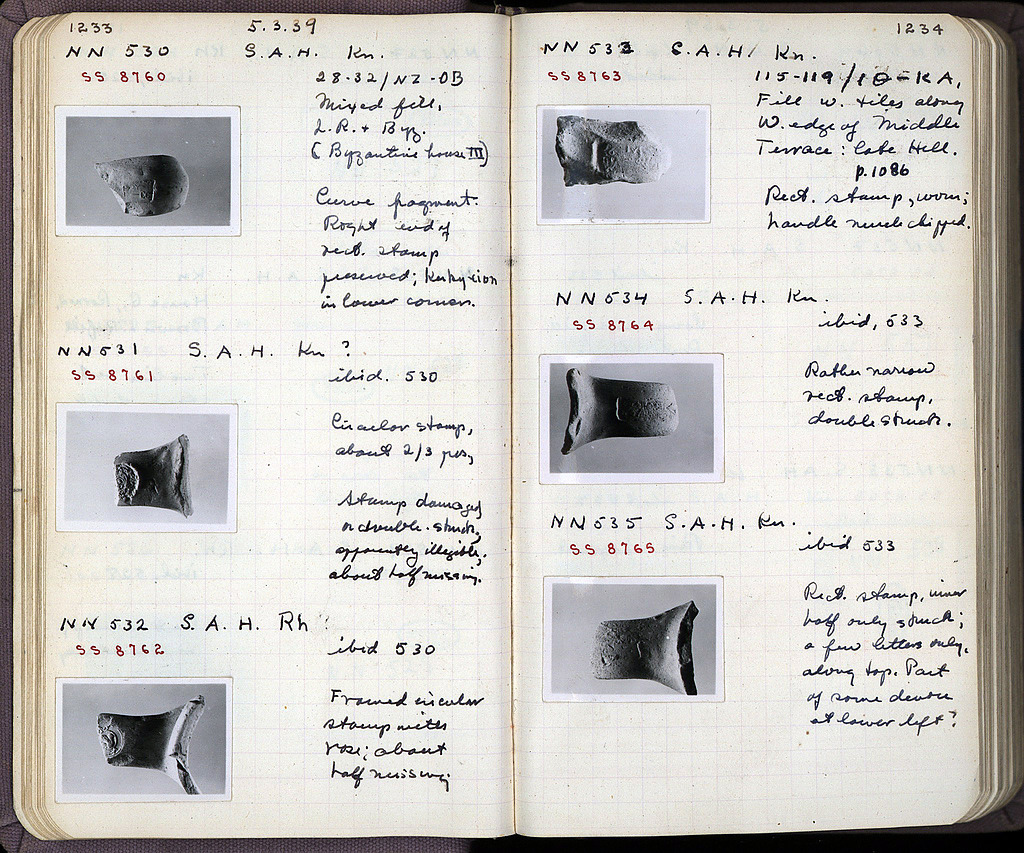 1233 5.3.39
NN 530 S.A.H. Kn.
SS 8760 28-32/NZ-OB
Mixed fill,
L.R. + Byz.
(Byzantine house III)
Curve fragment.
Right end of
rect. stamp
preserved; kerykeion
in lower corner.
NN 531 S.A.H. Kn?
SS 8761 ibid. 530
Circular stamp,
about 2/3 pres,
Stamp damaged
or double-struck,
apparently illegible,
about half missing.
NN 532 S.A.H. Rh
SS 8762 ibid 530
Framed circular
stamp with
rose; about
half missing.
1234
NN 533 S.A.H. Kn.
SS 8763 115-119/ -KA,
Fill w. tiles along
W. edge of Middle
Terrace: late Hell.
p.1086
Rect. stamp, worn;
handle much chipped.
NN 534 S.A.H. Kn.
SS 8764 ibid, 533
Rather narrow
rect. stamp,
double struck.
NN 535 S.A.H. Kn.
SS 8765 ibid 533
Rect. stamp, inner
half only struck;
a few letters only,
along top. Part
of some device
at lower left?